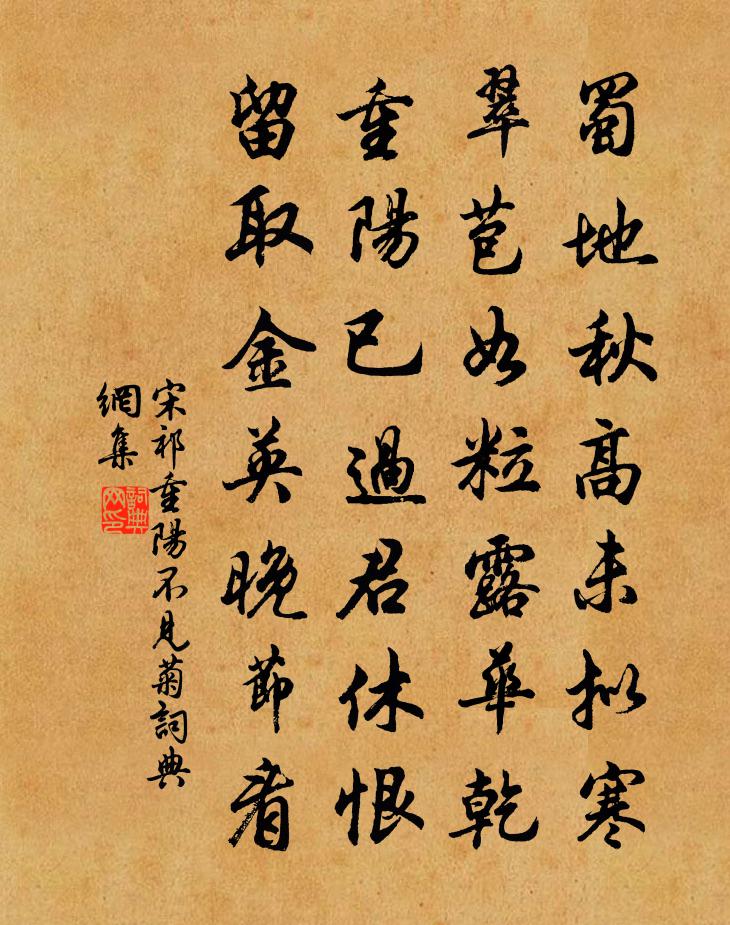 蜀地秋高未拟寒
翠苞如粒露華乾
重陽已過君休恨
留取金英晚節看
宋祁重陽不見菊詞典
網集
詞典網印